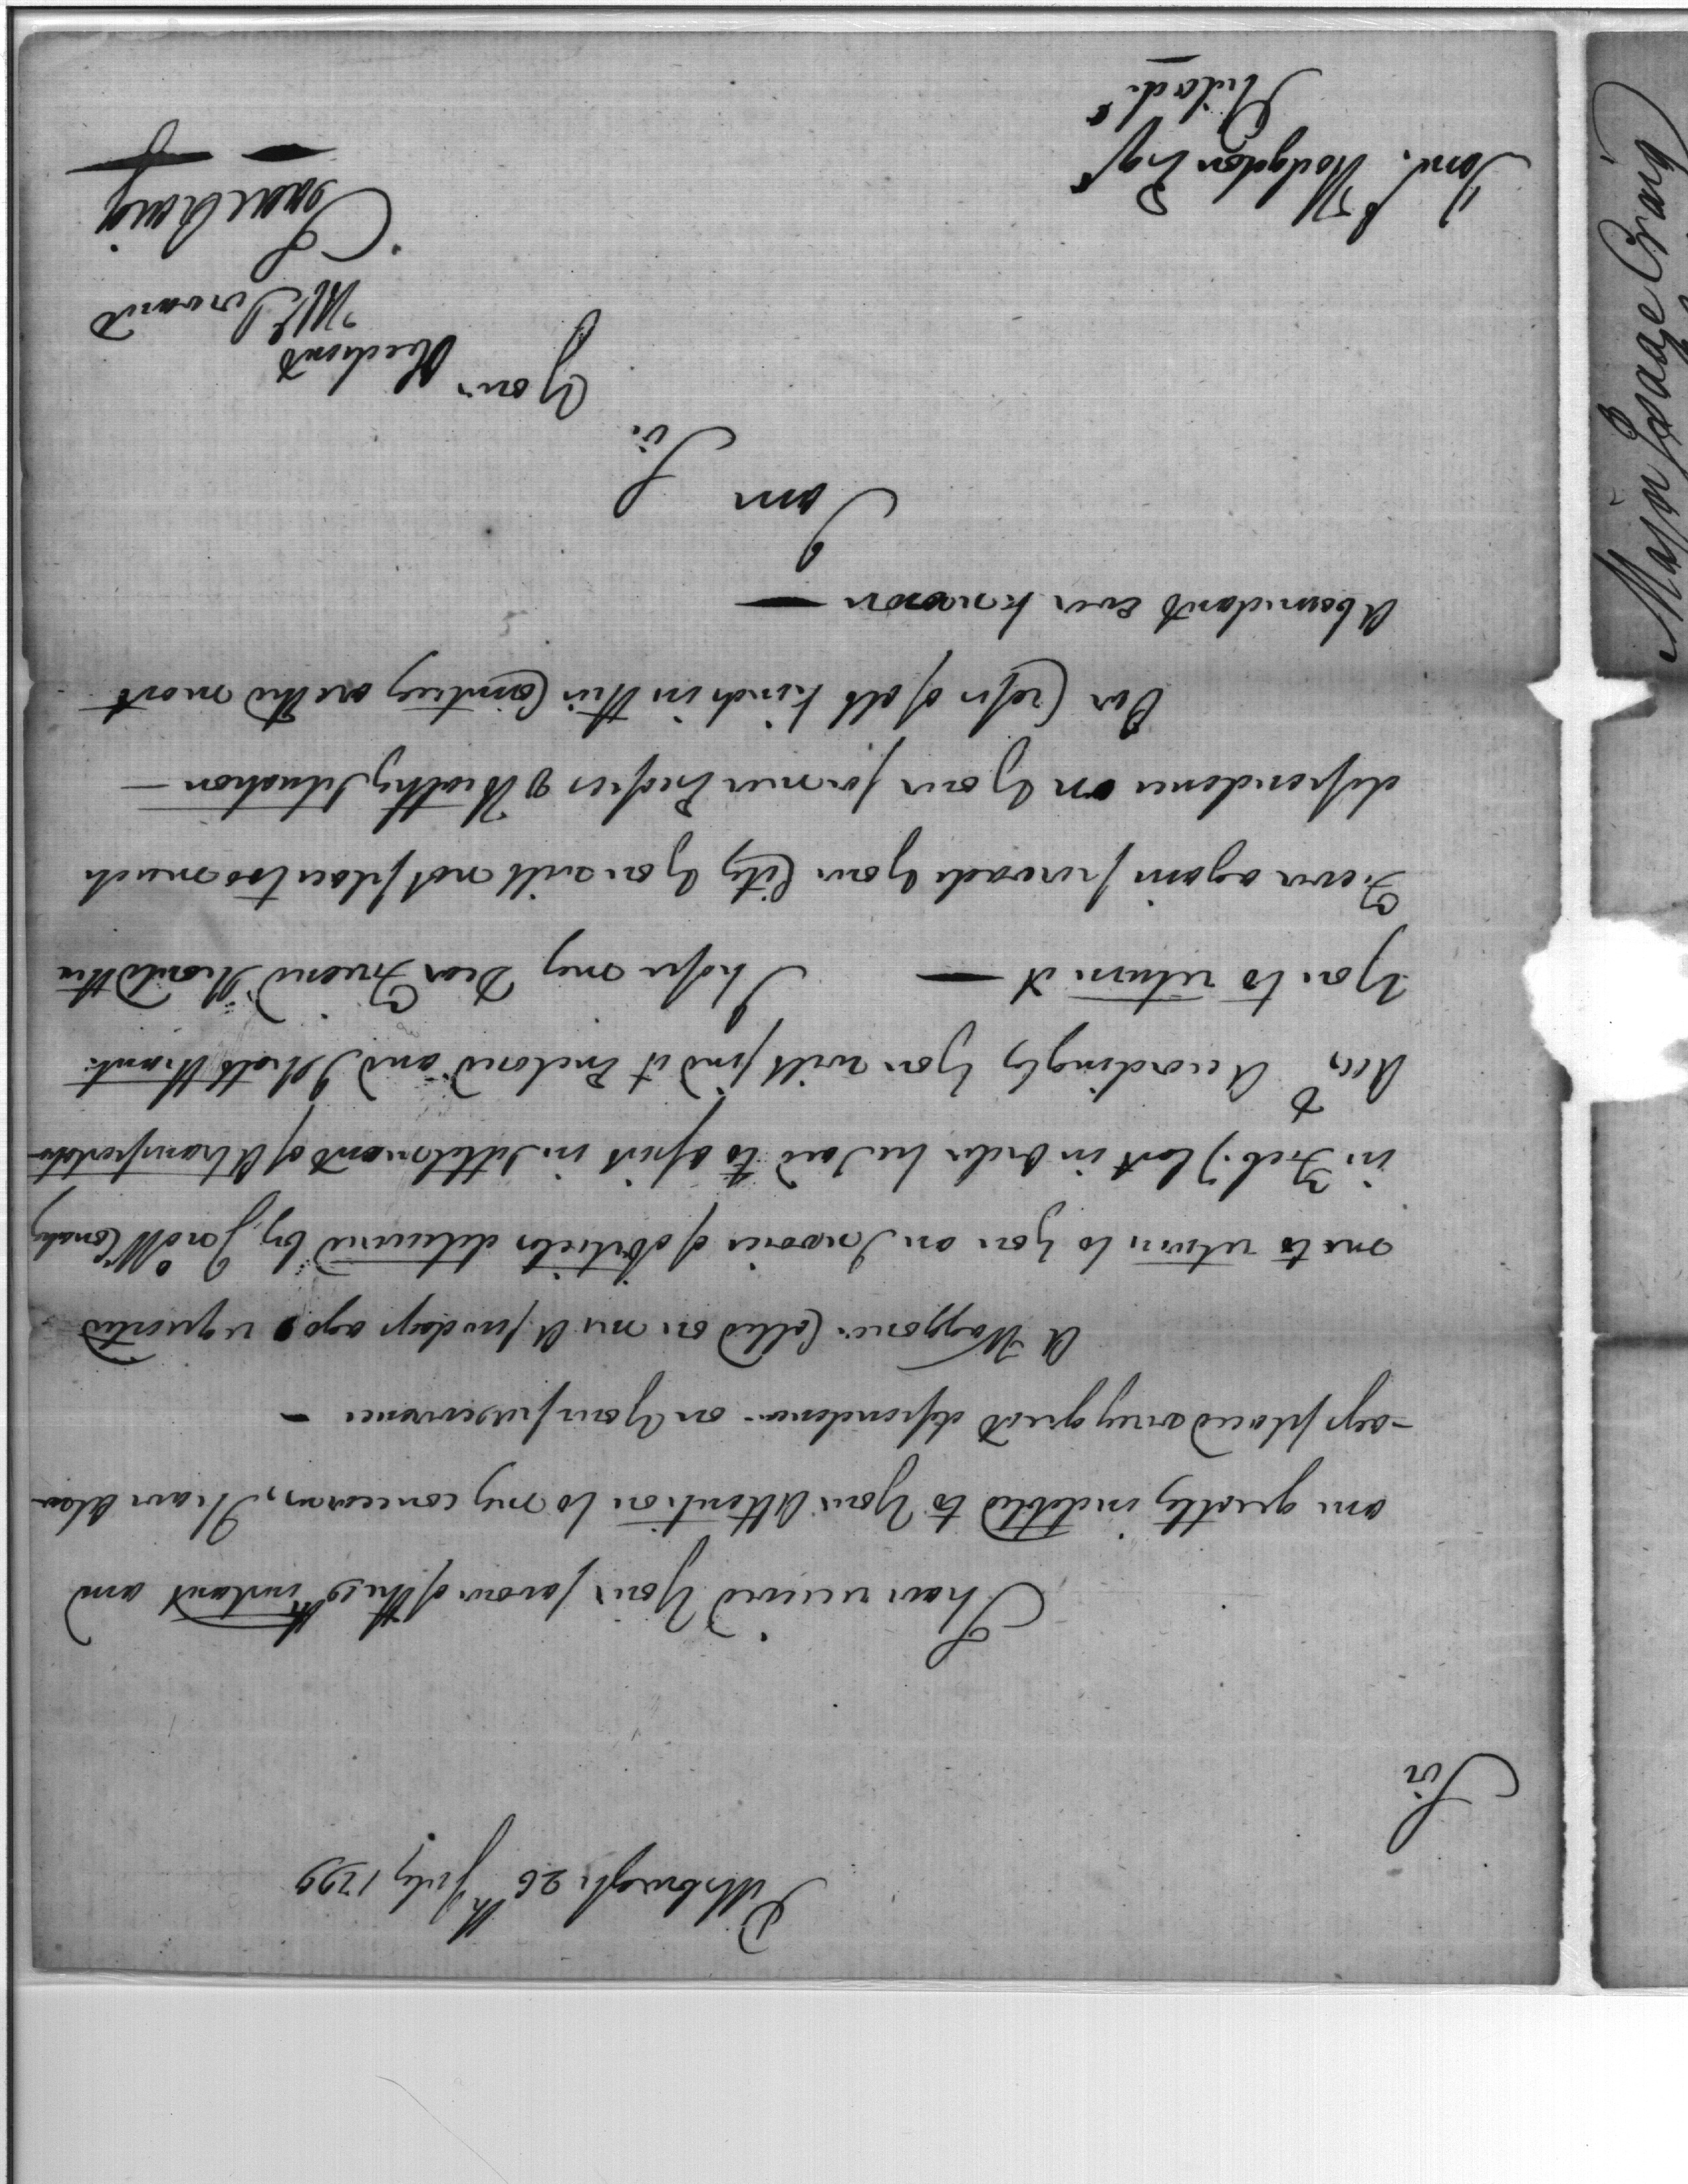 Pittsburgh 26th July 1799
Sir
I have received Your favor of the 19th instant and
am greatly indebted to Your Attention to my concerns, I have Alw-
-ays placed very great dependence on Your perseverance —
A Waggoner Called on me A few days ago requested
me to return to You an Invoice of Articles delivered by Jno McConahy
in Feby last in Order he said to assist in Settlement of A transportation
Acct, Accordingly You will find it Enclosed and I shall thank
You to return it — I hope my Dear Friend Should the
Fever again pervade Your City You will not place too much
dependence on Your former Escapes & Healthy Situation —
Our Crops of all kinds in this Country are the most
Abundant ever known —
I am
Sir
Your Obedient
Hble Servant
Isaac Craig
Saml. Hodgdon Esqr
Philada
Major Isaac Craig